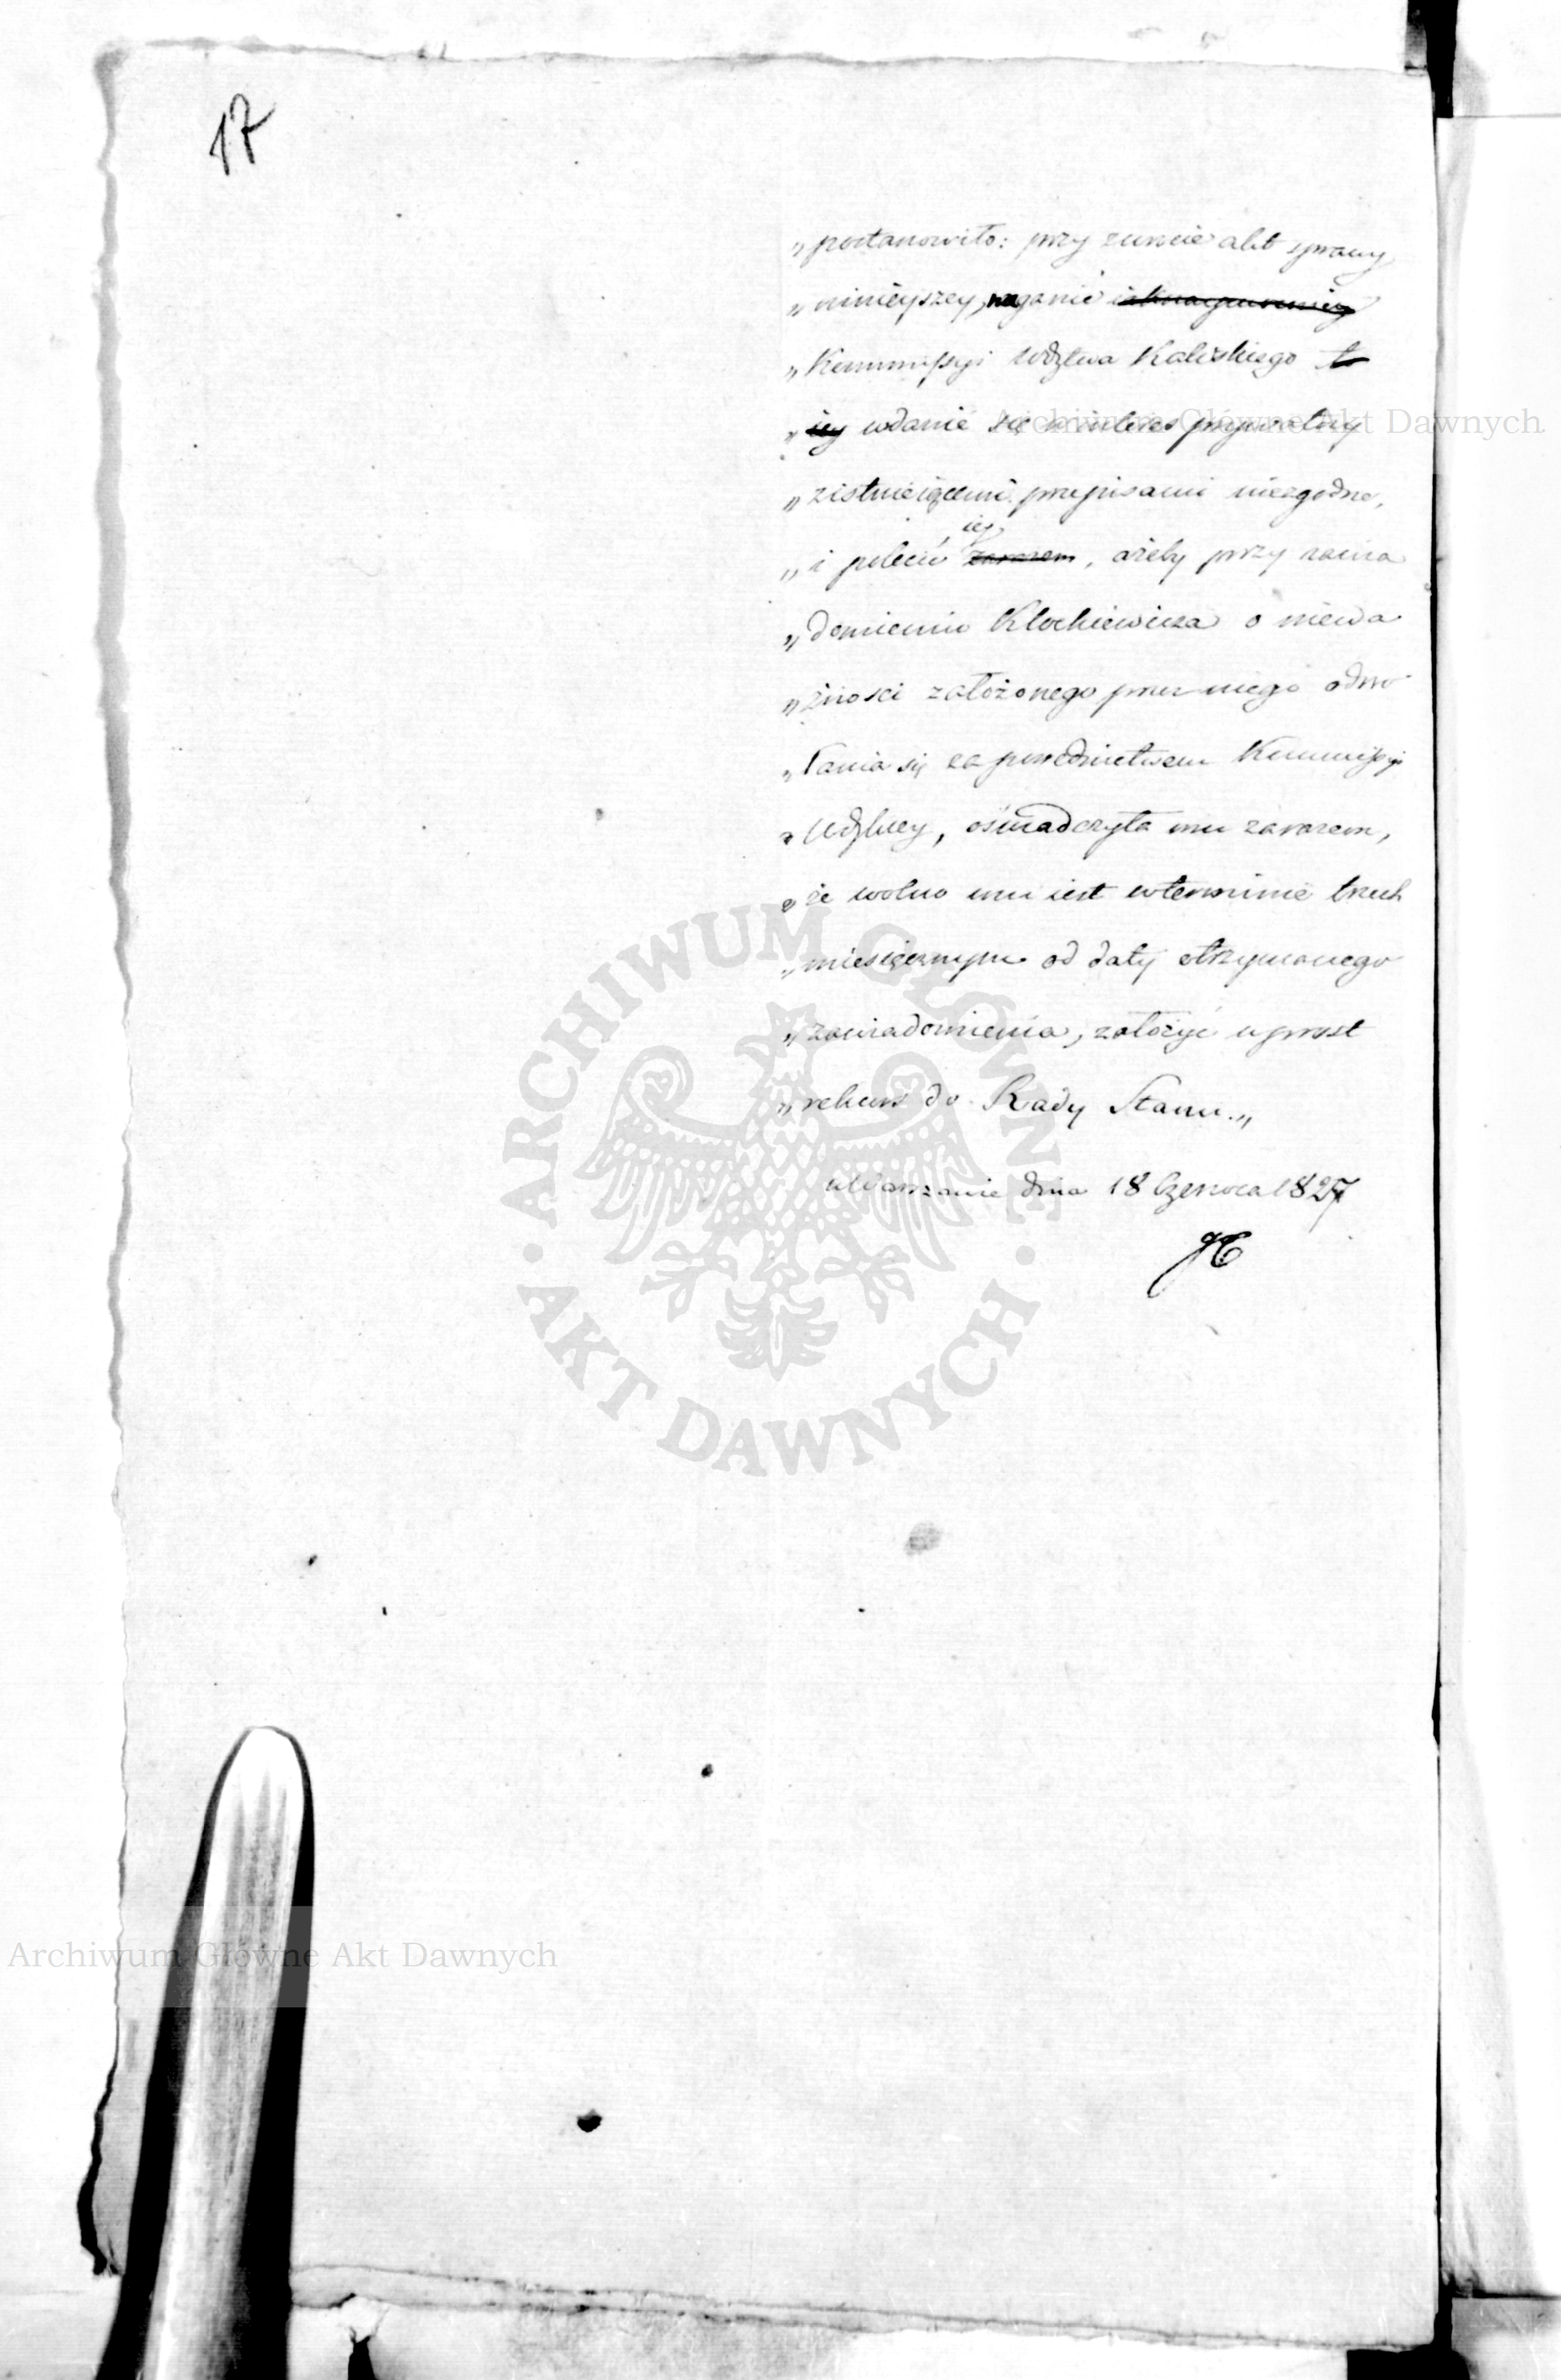 17
„postanowiło: przy zwrocie akt sprawy
„ninieyszey, naganić
„Kommissyi Wdztwa Kaliskiego to
„iey wdanie się w interes prywatny
„z istnieiącemi przepisami niezgodne,
iey
„i polecić zarazem, ażeby przy zawia
„domieniu Klockiewicza o niewa
„żności założonego przez niego odwo
„łania się za pośrednictwem Kommissyi
„Wdzkiey, oświadczyła mu zarazem,
„że wolno mu iest w terminie trzech
„miesięcznym od daty otrzymanego
„zawiadomienia, założyć wprost
„rekurs do Rady Stanu.„
w Warszawie dnia 18 Czerwca 1827
Archiwum Główne Akt Dawnych
ARCHIWUM GŁÓWNE
· AKT DAWNYCH ·
Archiwum Główne Akt Dawnych